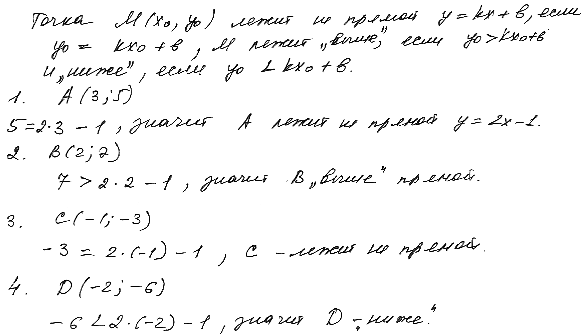 Точка M(x₀, y₀) лежит на прямой y = kx + b, если
y₀ = kx₀ + b, M лежит „выше", если y₀ > kx₀ + b
и „ниже", если y₀ < kx₀ + b.
1. A(3;5)
5 = 2·3 − 1, значит A лежит на прямой y = 2x − 1.
2. B(2;7)
7 > 2·2 − 1, значит B „выше" прямой.
3. C(−1; −3)
−3 = 2·(−1) − 1, C − лежит на прямой.
4. D(−2; −6)
−6 < 2·(−2) − 1, значит D − „ниже"